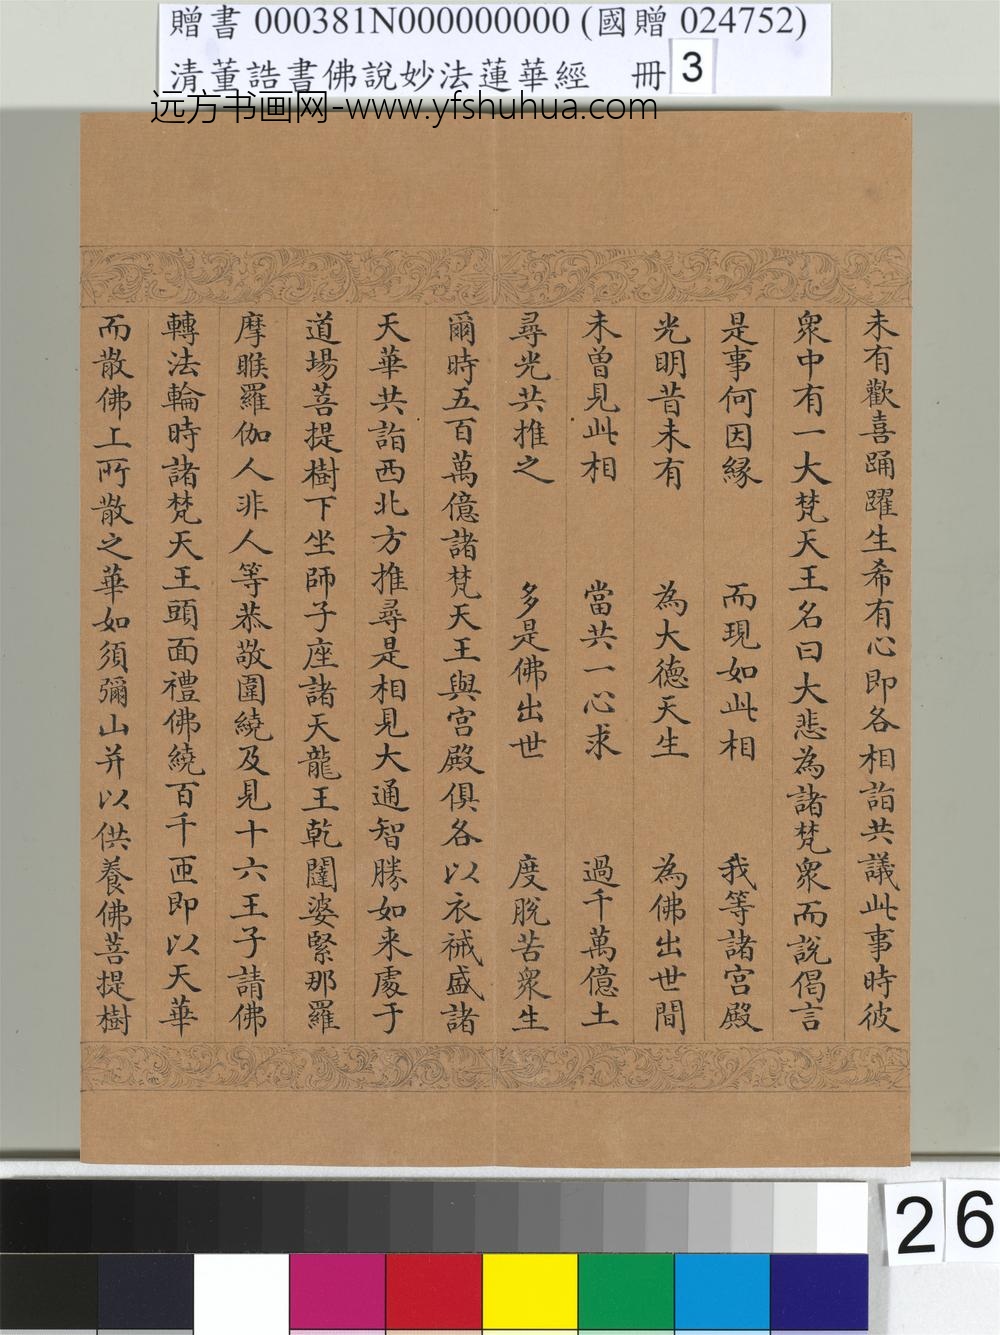 贈書 000381N000000000 (國贈 024752)
清董誥書佛說妙法蓮華經 冊 3
远方书画网-www.yfshuhua.com
未有歡喜踊躍生希有心即各相詣共議此事時彼
衆中有一大梵天王名曰大悲為諸梵衆而說偈言
是事何因緣 而現如此相 我等諸宮殿
光明昔未有 為大德天生 為佛出世間
未曾見此相 當共一心求 過千萬億土
尋光共推之 多是佛出世 度脫苦衆生
爾時五百萬億諸梵天王與宮殿俱各以衣裓盛諸
天華共詣西北方推尋是相見大通智勝如来處于
道場菩提樹下坐師子座諸天龍王乾闥婆緊那羅
摩睺羅伽人非人等恭敬圍繞及見十六王子請佛
轉法輪時諸梵天王頭面禮佛繞百千匝即以天華
而散佛上所散之華如須彌山并以供養佛菩提樹
26